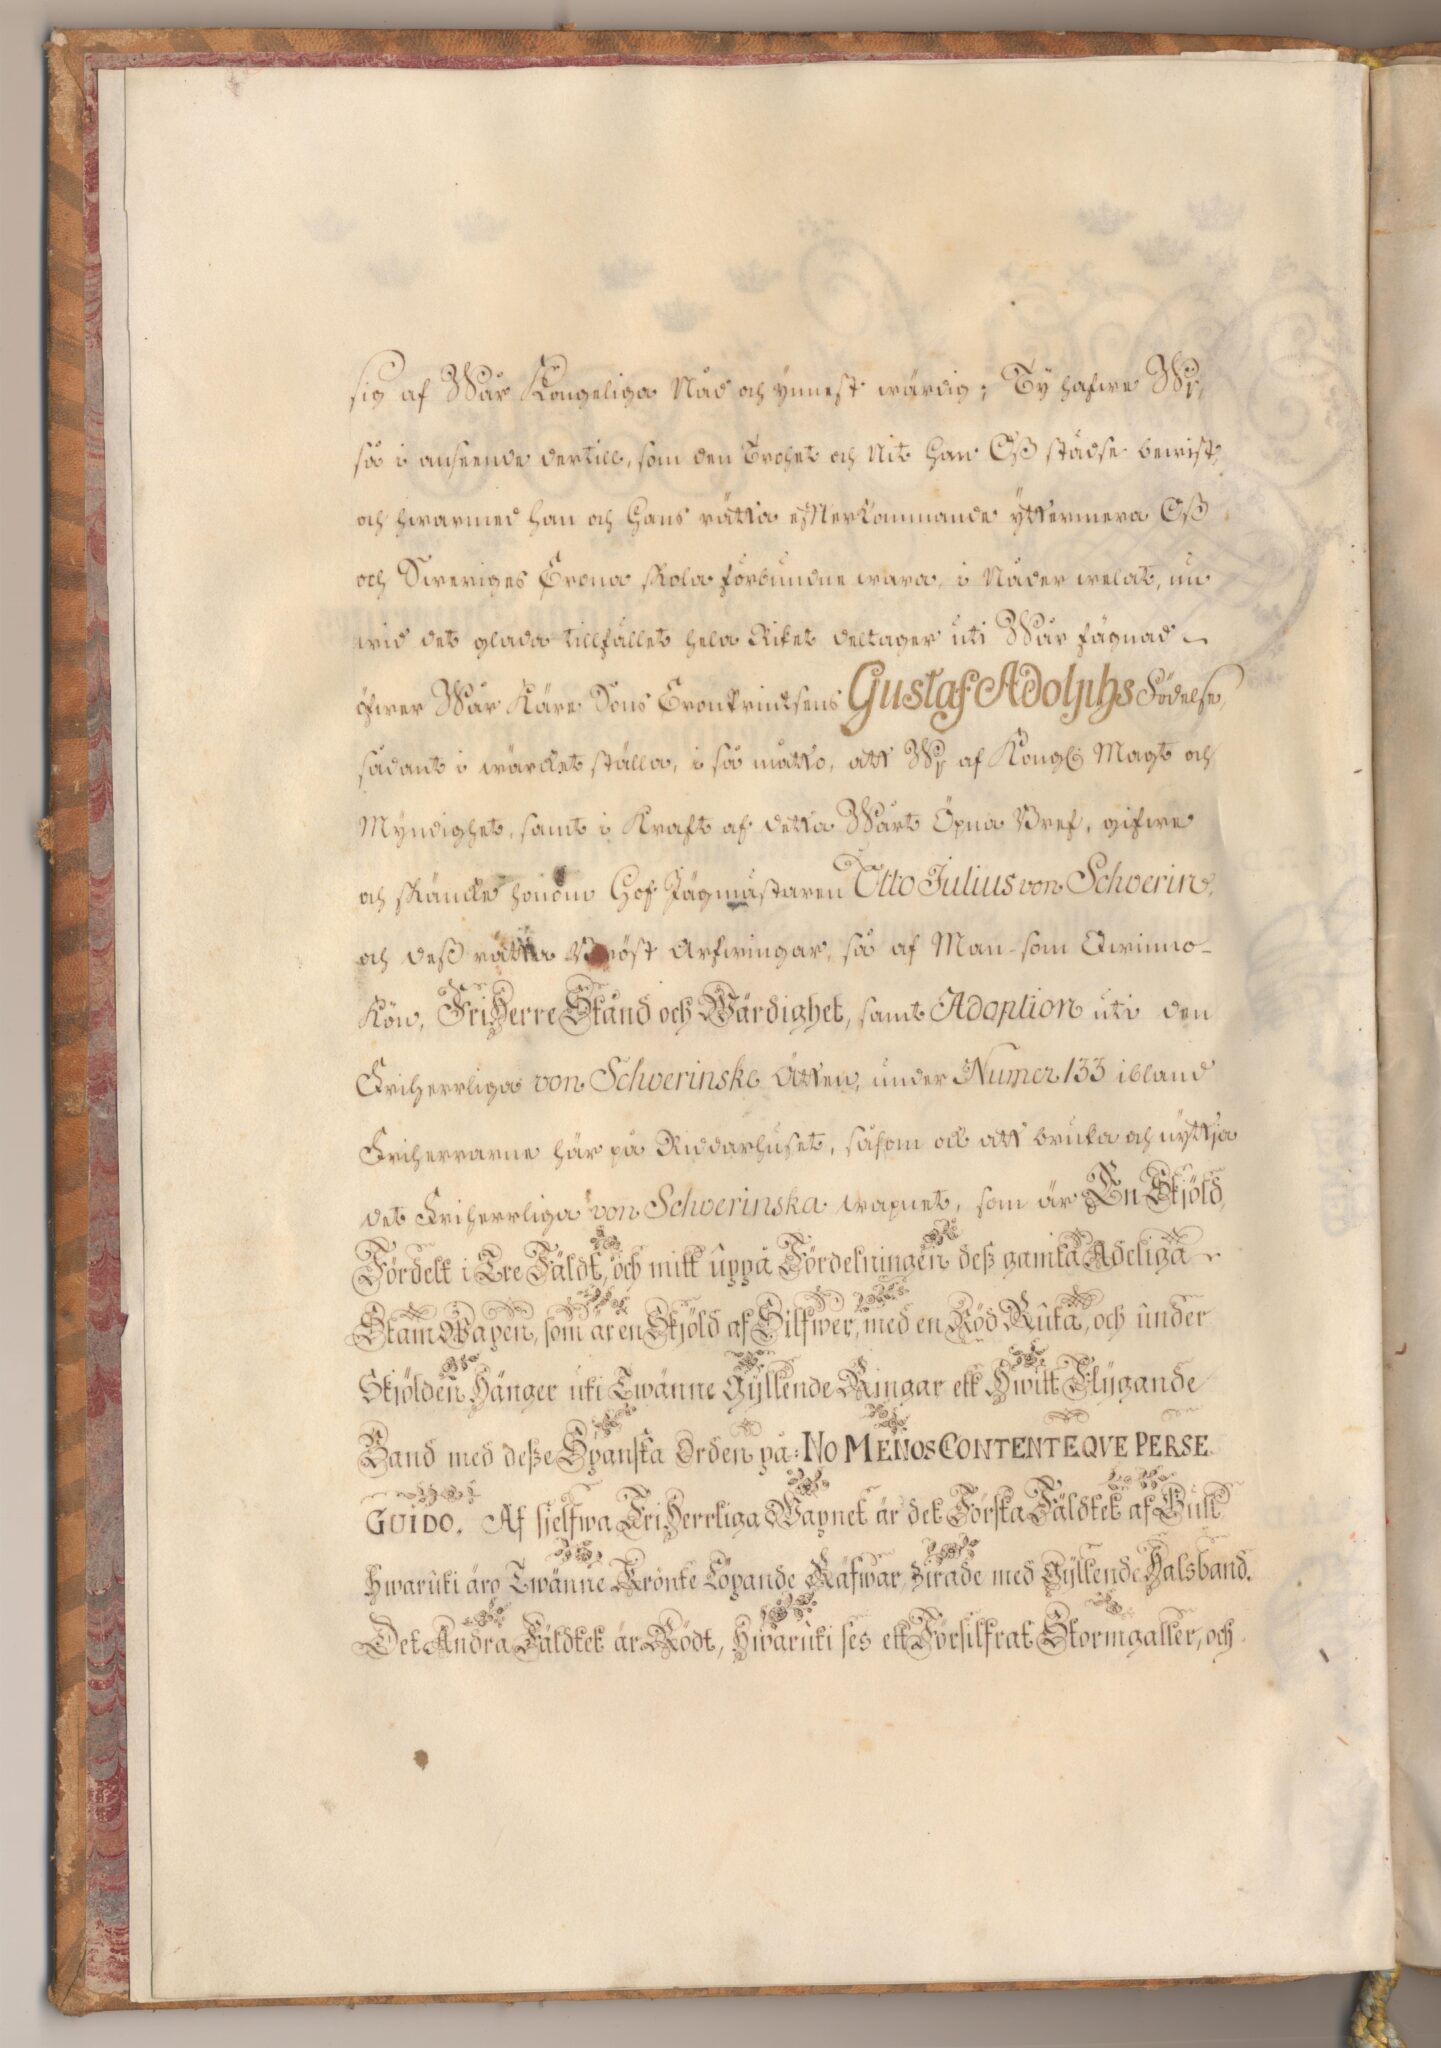 sig af Wår Kongeliga Nåd och ynnest wärdig; Ty hafwe Wy,
så i anseende dertill, som den Trohet och Nit Han Oß städse bewist,
och hwarmed Han och Hans rätta efterkommande yttermera Oß
och Sweriges Crona skola förbundne wara, i Nåder welat, nu
wid det glada tillfället hela Riket deltager uti Wår fägnad
öfwer Wår Käre Sons Cronprintsens Gustaf Adolphs Födelse,
sådant i wärcket ställa, i så måtto, att Wy af Kongl. Magt och
Myndighet, samt i Kraft af detta Wårt Öpna Bref, gifwe
och skäncke honom Hof Jägmästaren Otto Julius von Schwerin,
och deß rätta Bröst Arfwingar, så af Man- som Qwinno-
Kön, FriHerre Stånd och Wärdighet, samt Adoption uti den
Friherrliga von Schwerinske Ätten, under Numer 133 ibland
Friherrarne här på Riddarhuset, såsom ock att bruka och nyttja
det Friherrliga von Schwerinska wapnet, som är En Skjöld,
Fördelt i Tre Fäldt, och mitt uppå Fördelningen deß gamla Adeliga
StamWapen, som är en Skjöld af Silfwer, med en Röd Ruta, och under
Skjölden Hänger uti Twänne Gyllende Ringar ett Hwitt Flygande
Band med deße Spanska Orden på: NO MENOS CONTENTE QVE PERSE
GUIDO. Af sjelfwa FriHerrliga Wapnet är det Första Fäldtet af Guld
Hwaruti äro Twänne Krönte Löpande Räfwar, zirade med Gyllende Halsband.
Det Andra Fäldtet är Rödt, Hwaruti ses ett Försilfrat Stormgaller, och